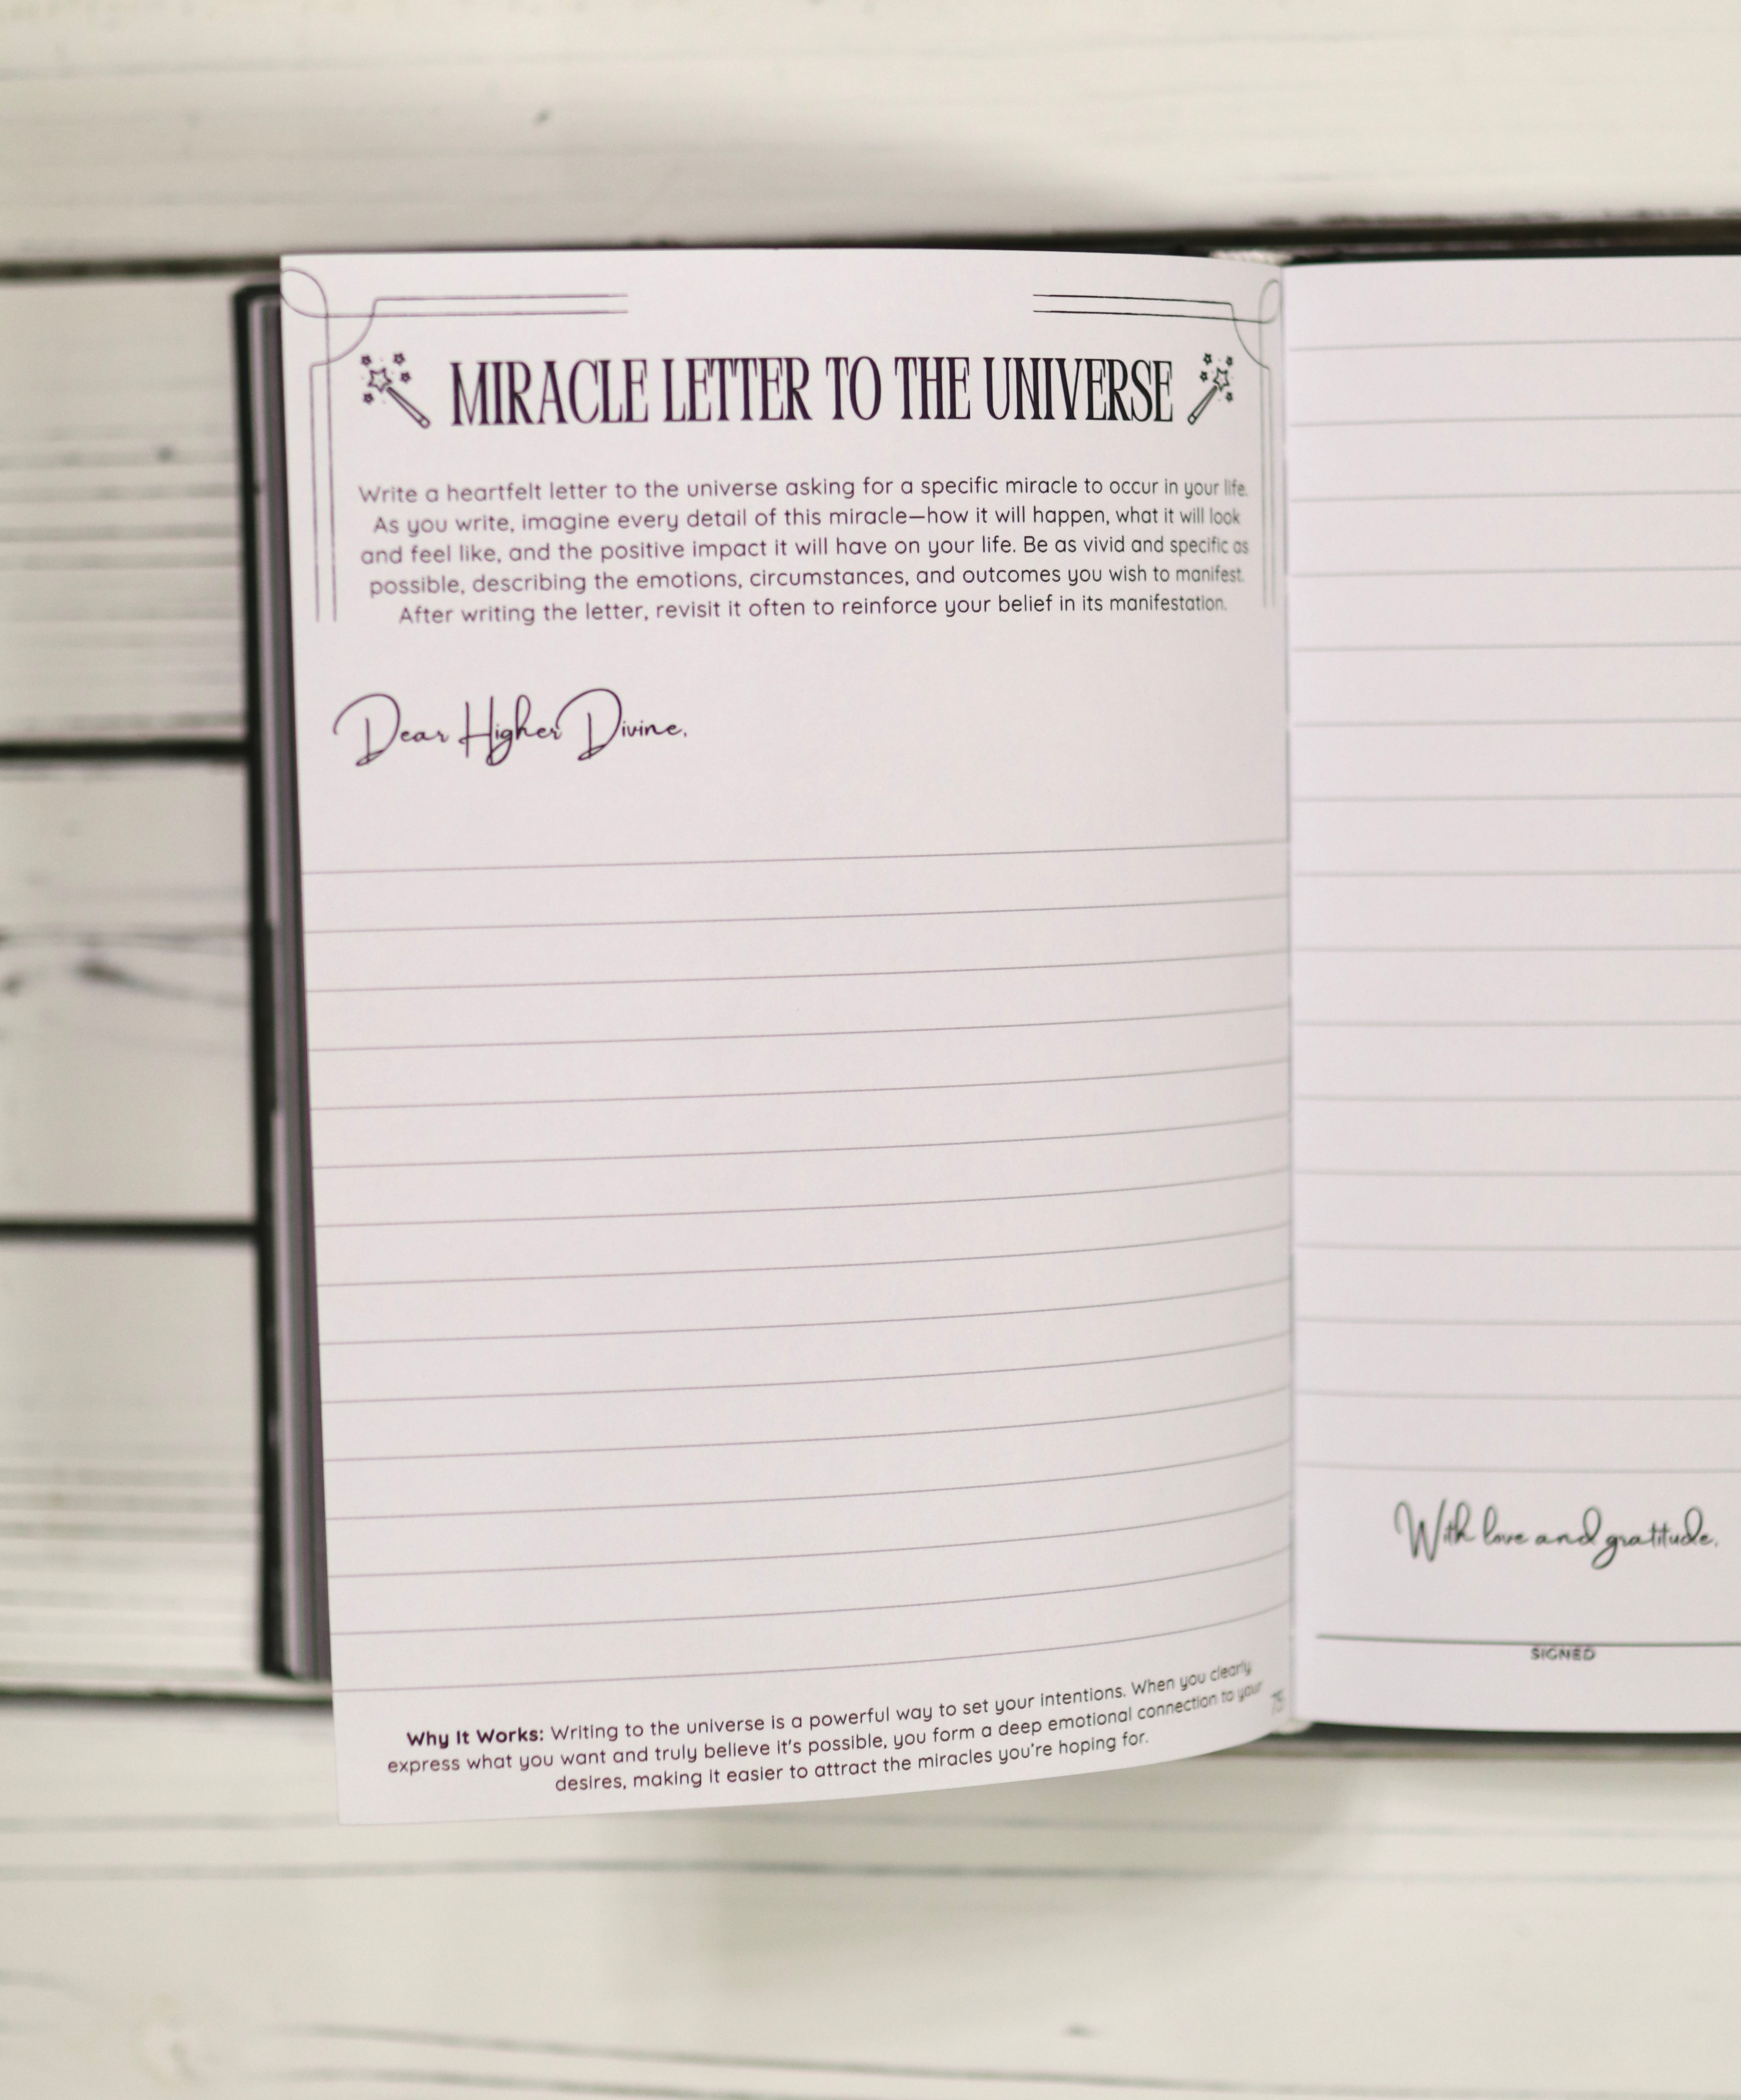 MIRACLE LETTER TO THE UNIVERSE
Write a heartfelt letter to the universe asking for a specific miracle to occur in your life.
As you write, imagine every detail of this miracle—how it will happen, what it will look
and feel like, and the positive impact it will have on your life. Be as vivid and specific as
possible, describing the emotions, circumstances, and outcomes you wish to manifest.
After writing the letter, revisit it often to reinforce your belief in its manifestation.
Dear Higher Divine,
Why It Works: Writing to the universe is a powerful way to set your intentions. When you clearly
express what you want and truly believe it's possible, you form a deep emotional connection to your
desires, making it easier to attract the miracles you're hoping for.
With love and gratitude,
SIGNED